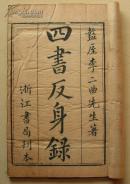 盩厔李二曲先生著
四書反身錄
浙江書局刊本